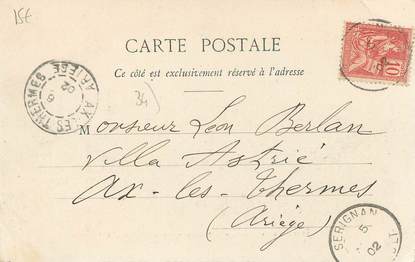 15€
CARTE POSTALE
Ce côté est exclusivement réservé à l'adresse
10
AX-LES-THERMES
ARIÈGE
34
Monsieur Léon Berlan
Villa Astrié
Ax-les-Thermes
(Ariège)
SERIGNAN
5
02